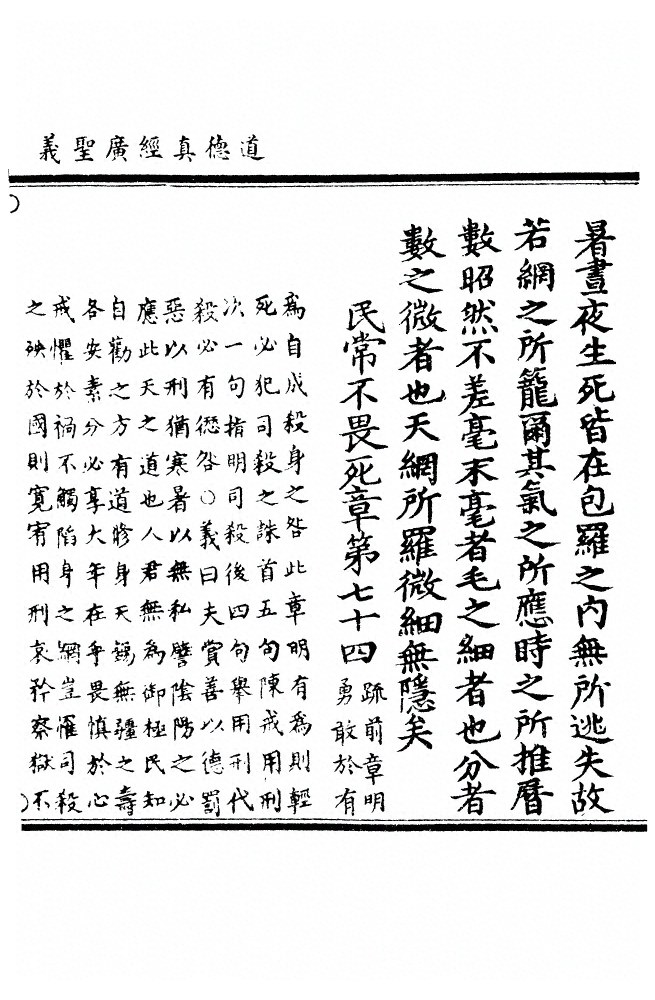 道德真經廣聖義
暑晝夜生死皆在包羅之内無所逃失故
若網之所籠爾其氣之所應時之所推曆
數昭然不差毫末毫者毛之細者也分者
數之微者也天網所羅微細無隱矣
民常不畏死章第七十四疏前章明
勇敢於有
為自成殺身之咎此章明有為則輕
死必犯司殺之誅首五句陳戒用刑
次一句指明司殺後四句舉用刑代
殺必有愆咎○義曰夫賞善以德罰
惡以刑猶寒暑以無私譬陰陽之必
應此天之道也人君無為御極民知
自勸之方有道脩身天錫無疆之壽
各安素分必享大年在乎畏慎於心
戒懼於禍不觸陷身之網豈罹司殺
之殃於國則寬宥用刑哀矜察獄不